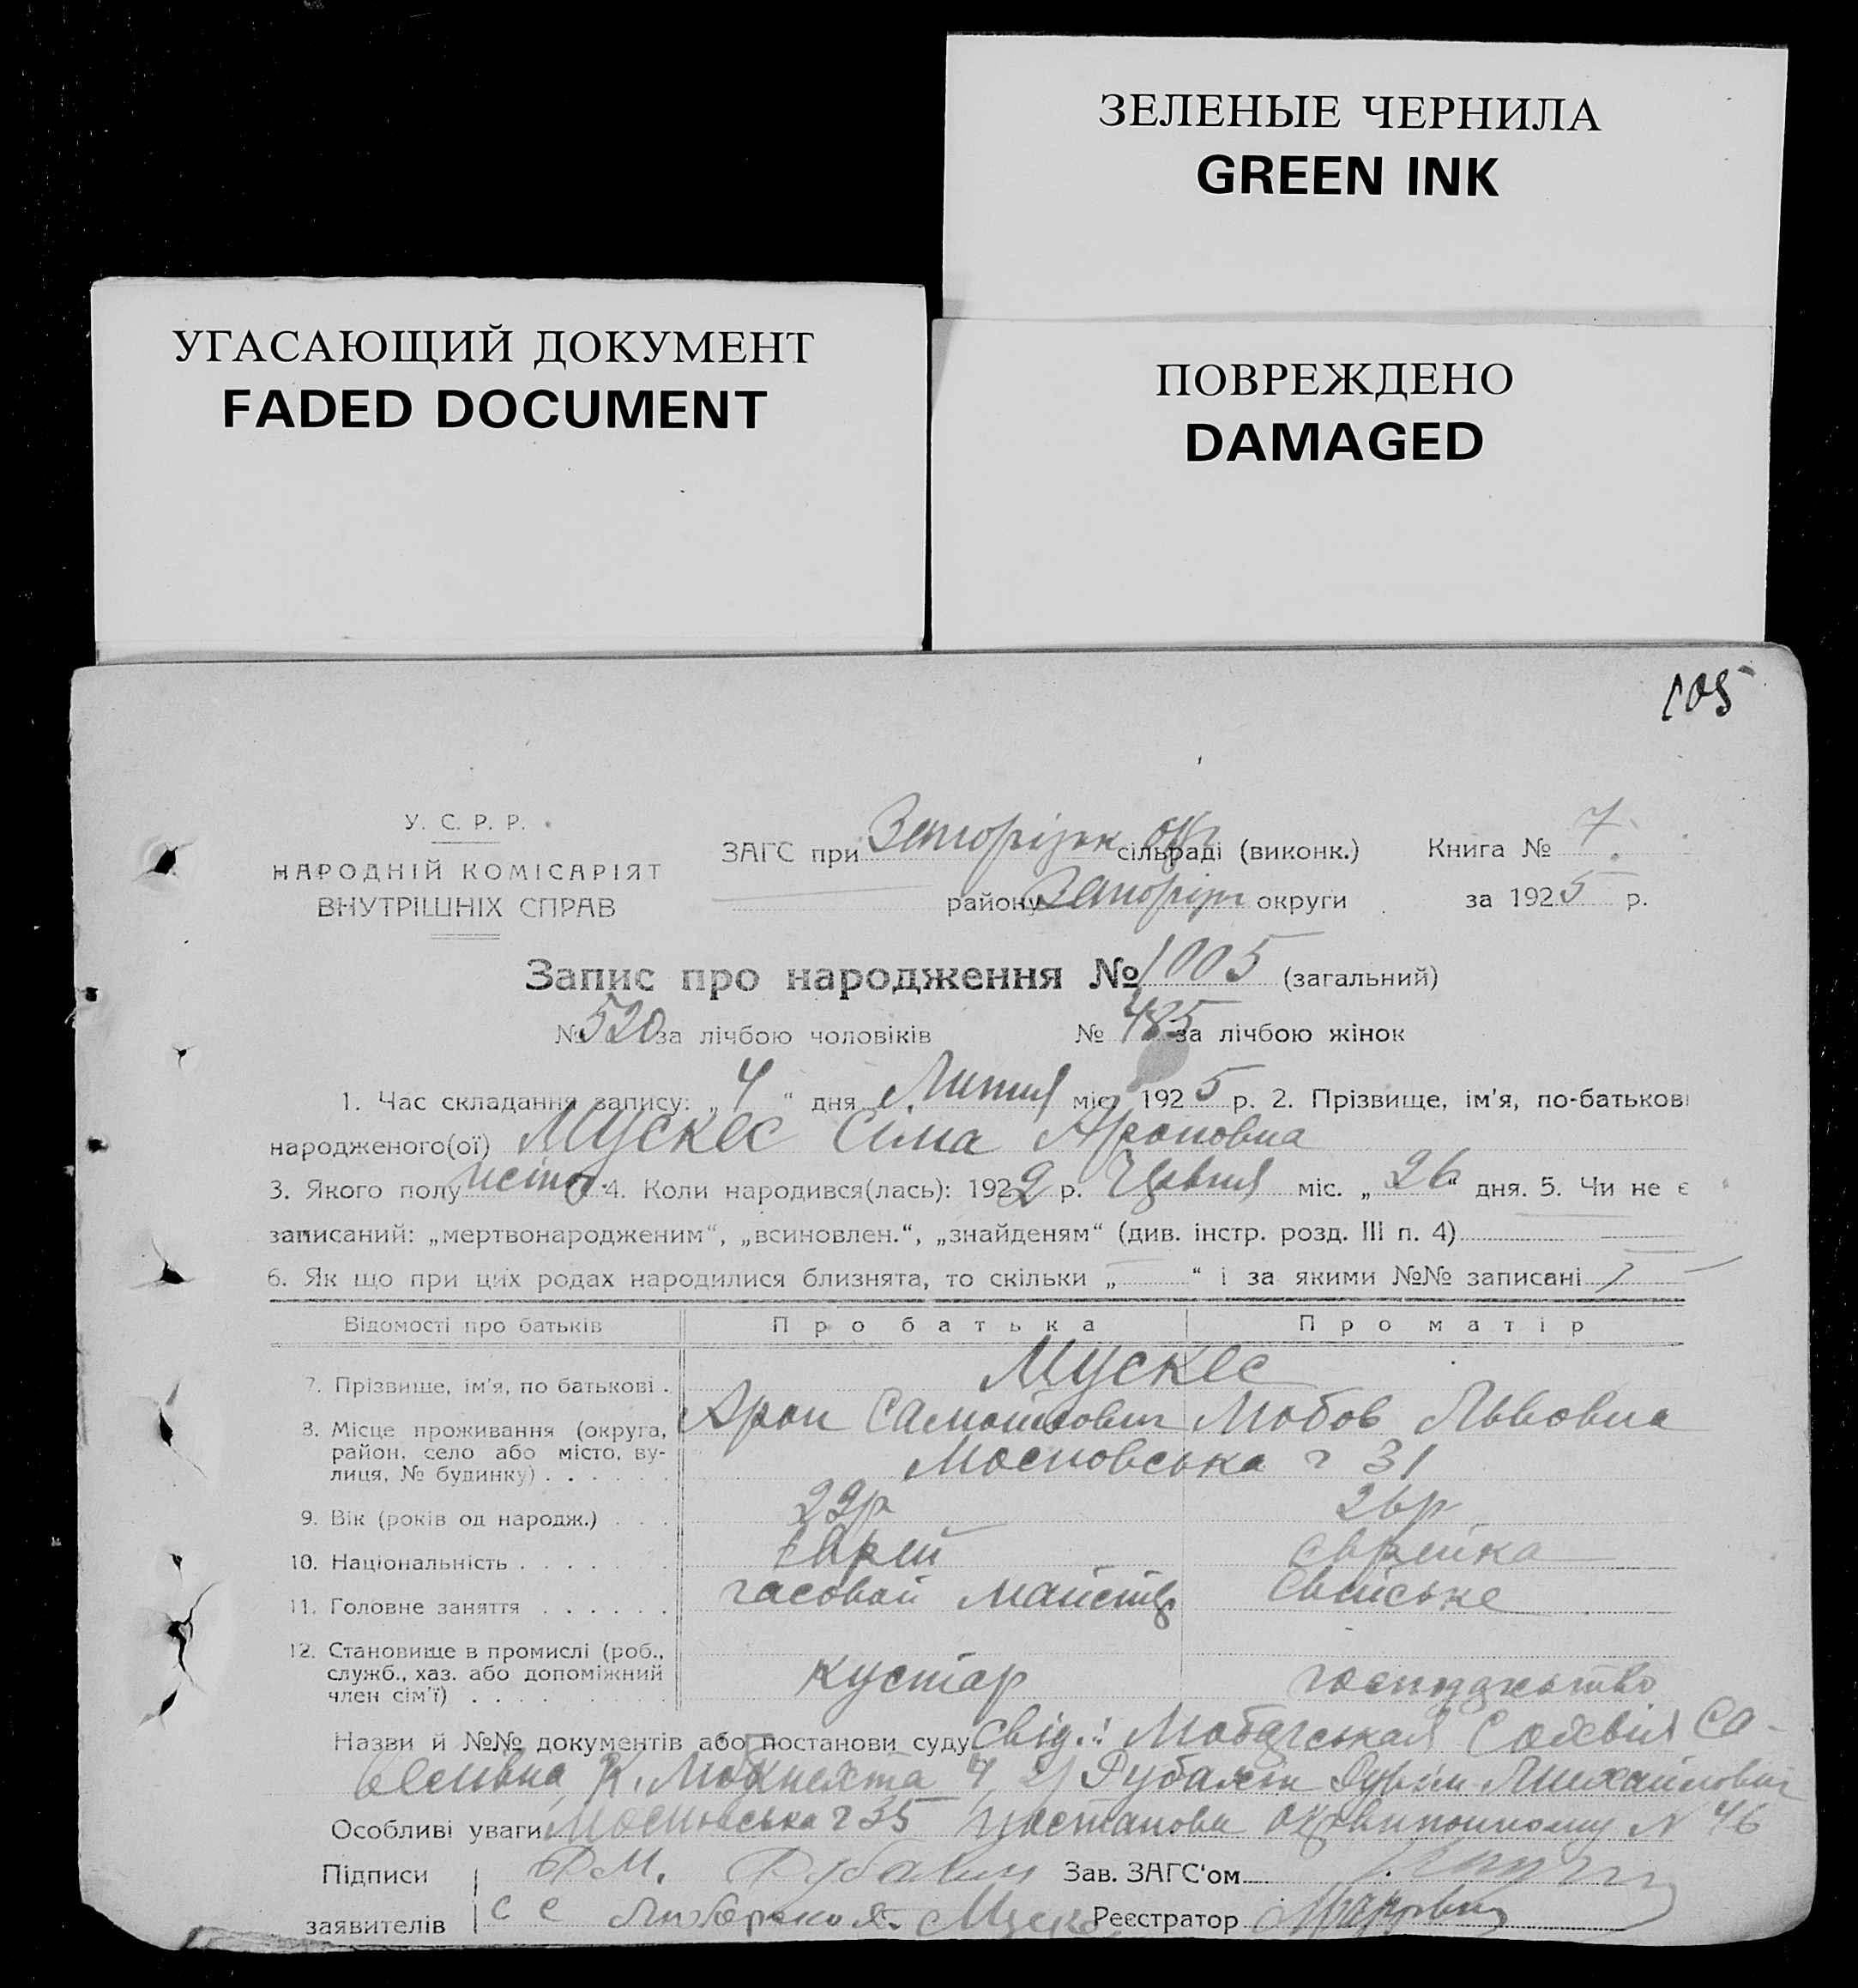 ЗЕЛЕНЫЕ ЧЕРНИЛА
GREEN INK
УГАСАЮЩИЙ ДОКУМЕНТ
FADED DOCUMENT
ПОВРЕЖДЕНО
DAMAGED
105
У. С. Р. Р.
НАРОДНІЙ КОМІСАРІЯТ
ВНУТРІШНІХ СПРАВ
ЗАГС при Запорізьк окр сільраді (виконк.) Книга № 7
району Запоріж округи за 1925 р.
Запис про народження № 1005 (загальний)
№ 520 за лічбою чоловіків № 485 за лічбою жінок
1. Час складання запису: „4“ дня Липня міс. 1925 р. 2. Прізвище, ім'я, по-батькові
народженого(ої) Мускес Сіма Ароновна
3. Якого полу 4. Коли народився(лась): 1922 р. Червня міс. „26“ дня. 5. Чи не є
записаний: „мертвонародженим“, „всиновлен.“, „знайденям“ (див. інстр. розд. III п. 4)
6. Як що при цих родах народилися близнята, то скільки „ “ і за якими №№ записані
Відомості про батьків Про батька Про матір
7. Прізвище, ім'я, по батькові . Мускес
Арон Самойлович Любов Львовна
8. Місце проживання (округа, район, село або місто, ву-
лиця, № будинку) . . . . . . Московська ч 31
9. Вік (років од народж.) . . . 29р 26р
10. Національність . . . . . . Єврей Єврейка
11. Головне заняття . . . . . . часовай майстр Свійське
12. Становище в промислі (роб.,
служб., хаз. або допоміжний
член сім'ї) . . . . . . . . . кустар господарство
Назви й №№ документів або постанови суду Свід.: Са-
К. Лібкнехта 4, 2) Михайлович
Особливі уваги Московська ч 35 Постанова окрвиконкому N 46
Підписи Зав. ЗАГС'ом
заявителів Реєстратор